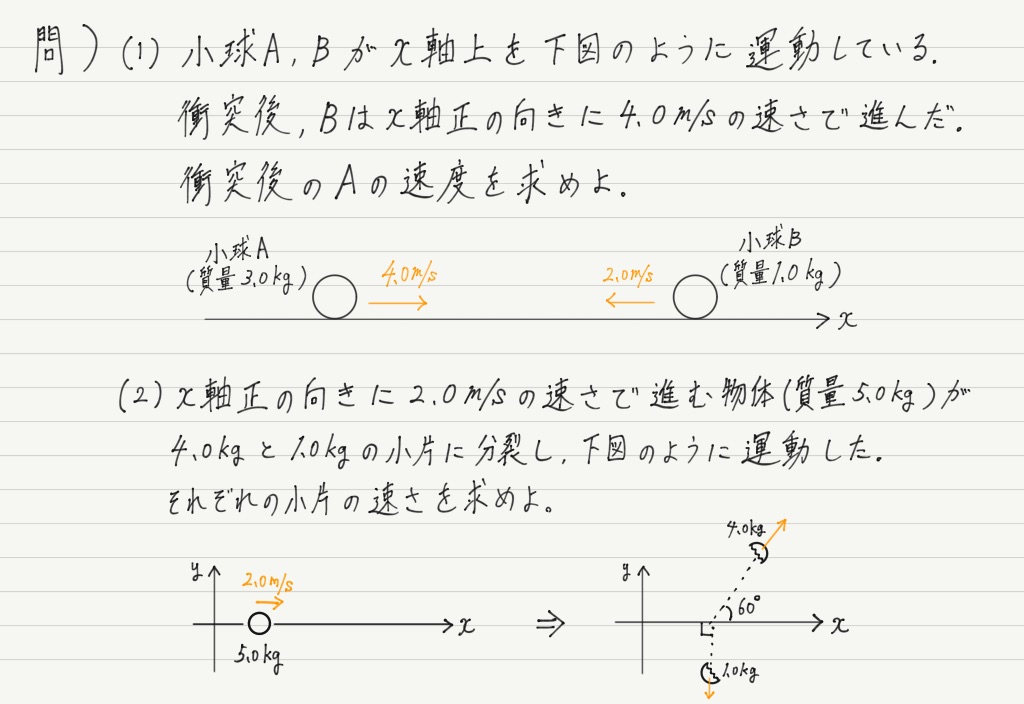 問) (1) 小球A, Bがx軸上を下図のように運動している.
衝突後, Bはx軸正の向きに4.0m/sの速さで進んだ.
衝突後のAの速度を求めよ.
小球A
(質量3.0kg)
4.0m/s
2.0m/s
小球B
(質量1.0kg)
x
(2) x軸正の向きに2.0m/sの速さで進む物体(質量5.0kg)が
4.0kgと1.0kgの小片に分裂し, 下図のように運動した.
それぞれの小片の速さを求めよ。
y
2.0m/s
x
5.0kg
⇒
y
4.0kg
60°
x
1.0kg